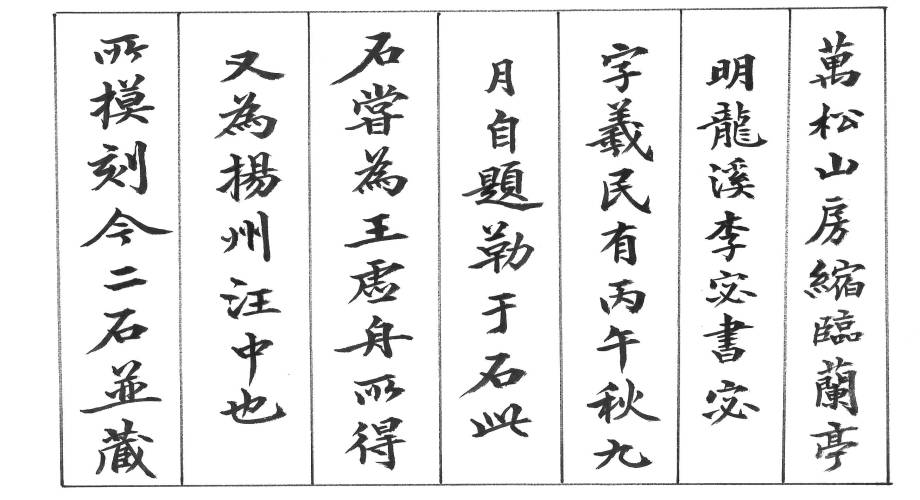 萬松山房縮臨蘭亭
明龍溪李宓書宓
字羲民有丙午秋九
月自題勒于石此
石嘗為王虛舟所得
又為揚州汪中也
所模刻今二石並藏